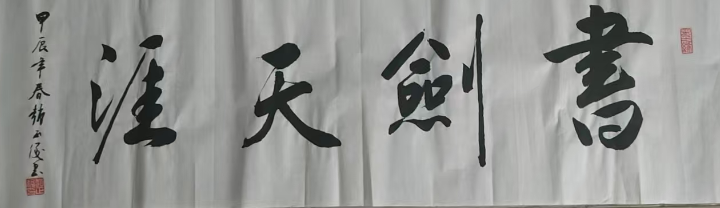 書劍天涯
甲辰年春